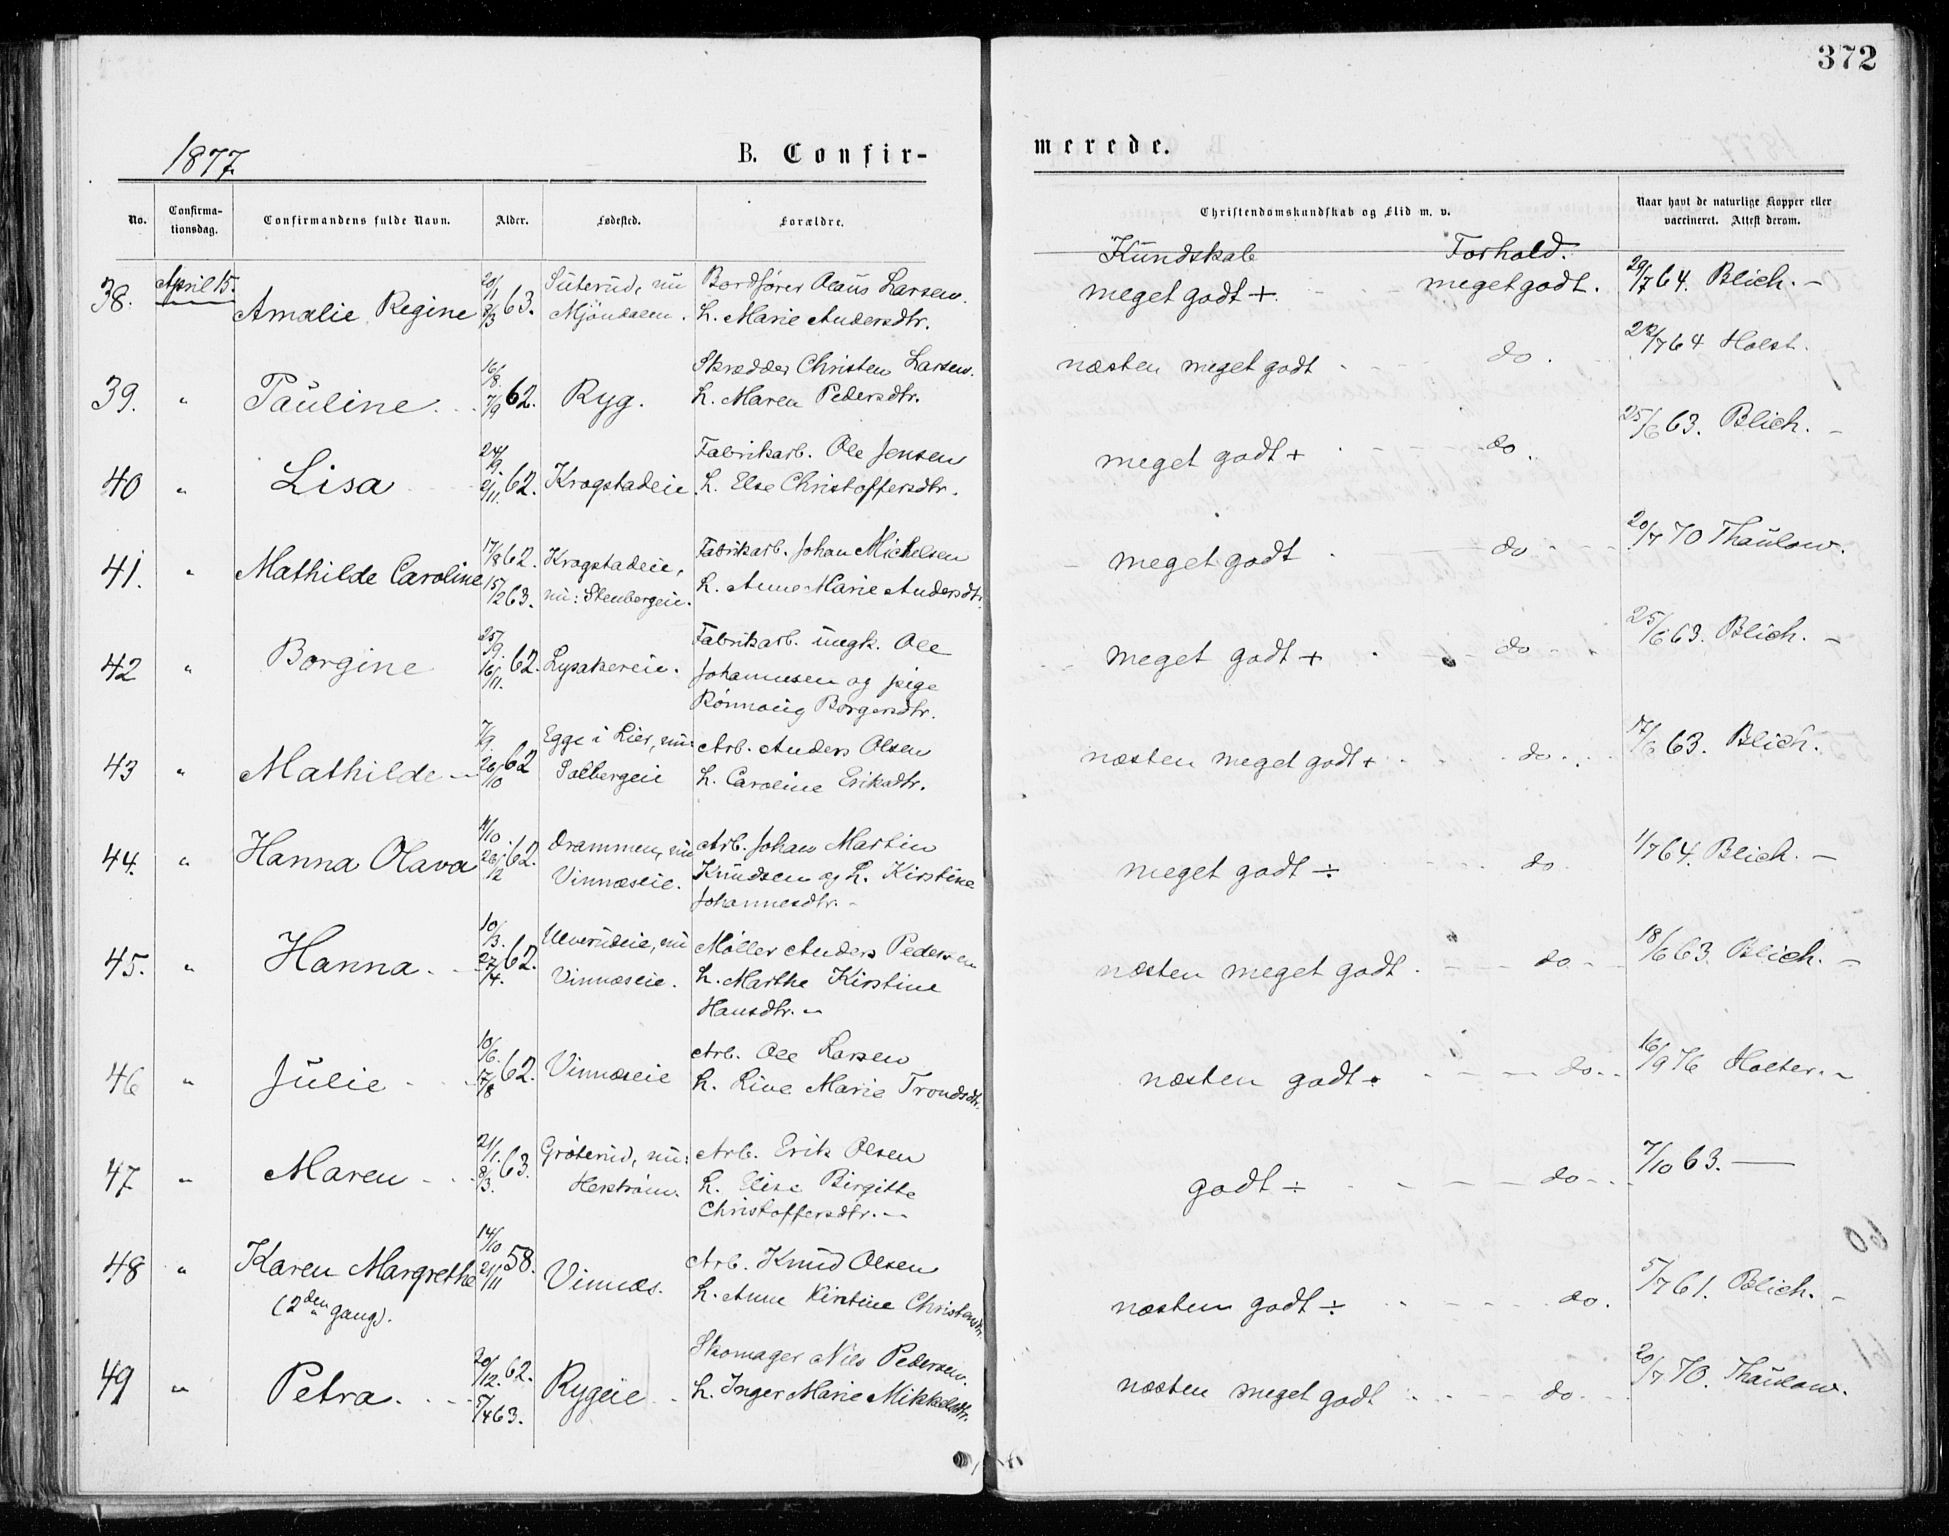 372
1877.
B. Confir-
merede.
No.
Confirma-
tionsdag.
Confirmandens fulde Navn.
Alder.
Fødested.
Forældre.
Christendomskundskab og Flid m. v.
Naar havt de naturlige Kopper eller
vaccineret. Attest derom.
Kundskab
Forhold.
38. April 15. Amalie Regine 20/1 8/3 63. Suterud, nu Mjöndalen. Bordfører Olaus Larsen. h. Marie Andersdtr. meget godt + meget godt. 29/7 64. Blich. –
39. " Pauline 16/8. 7/9 62. Ryg. Skrædder Christen Larsen. h. Maren Pedersdtr. næsten meget godt do. 22/7 64 Holst.
40 " Lisa 24/9. 2/11. 62. Krogstadeie Fabrikarb. Ole Jensen h. Else Christoffersdtr. meget godt + do. 25/6 63. Blich. –
41. " Mathilde Caroline 17/8 62. 15/2 63. Krogstadeie, nu: Stenbergeie. Fabrikarb. Johan Mickelsen h. Anne Marie Andersdtr. meget godt do 20/7 70 Thaulow.
42 " Borgine 25/9. 16/11. 62. Lysakereie. Fabrikarb. ungk. Ole Johannesen og pige Rönnaug Borgersdtr. meget godt + do 25/6 63. Blich. –
43 " Mathilde 7/9. 26/10 62 Egge i Lier, nu: Solbergeie Arb. Anders Olsen h. Caroline Eriksdtr. næsten meget godt + do 17/6 63. Blich.
44. " Hanna Olava 11/10 26/12 62. Drammen, nu Vinnæseie. Arb. Johan Martin Knudsen og h. Kirstine Johannesdtr. – meget godt ÷ do 1/7 64. Blich. –
45. " Hanna 10/3. 27/4. 62. Ulverudeie, nu Vinnæseie. Møller Anders Pedersen h. Marthe Kirstine Hansdtr. – næsten meget godt do 18/6 63 Blich. –
46 " Julie 10/6. 17/8 62. Vinnæseie Arb. Ole Larsen h. Live Marie Trondsdtr. næsten godt + do 16/9 76 Holter. –
47 " Maren 21/1. 8/3. 63. Gröterud, nu: Herström. Arb. Erik Olsen h. Elise Birgitte Christoffersdtr. – godt ÷ do 7/10 63. —
48 " Karen Margrethe (2den gang). 14/10 21/11 58. Vinnæs. Arb. Knud Olsen h. Anne Kirstine Christensdtr. næsten godt ÷ do. 5/7 61. Blich. –
49 " Petra 20/12. 62. 5/4 63. Rygeie Skomager Nils Pedersen. h. Inger Marie Mikkelsdtr. næsten meget godt do. 20/7 70. Thaulow.